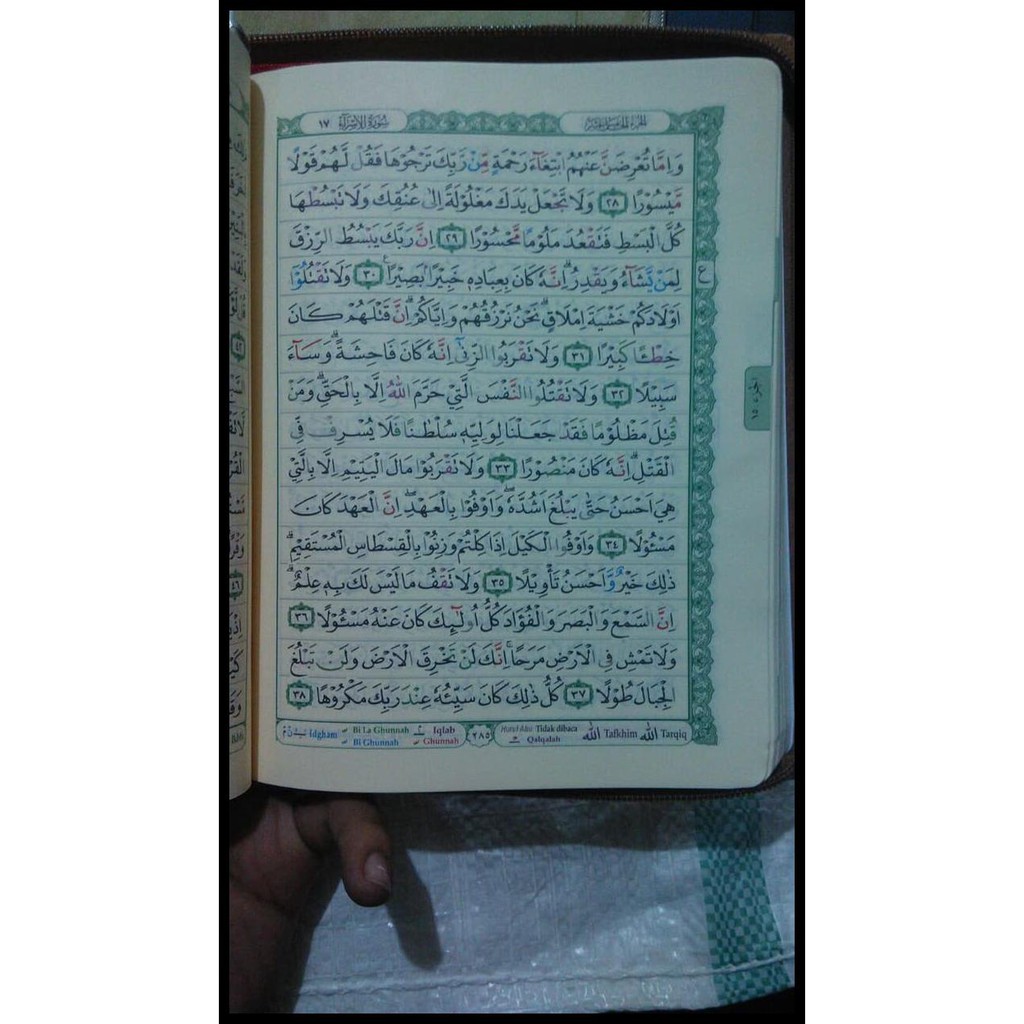 الجزء الخامس عشر
سورة الإسراء ١٧
وَاِمَّا تُعْرِضَنَّ عَنْهُمُ ابْتِغَاۤءَ رَحْمَةٍ مِّنْ رَّبِّكَ تَرْجُوْهَا فَقُلْ لَّهُمْ قَوْلًا
مَّيْسُوْرًا ٢٨ وَلَا تَجْعَلْ يَدَكَ مَغْلُوْلَةً اِلٰى عُنُقِكَ وَلَا تَبْسُطْهَا
كُلَّ الْبَسْطِ فَتَقْعُدَ مَلُوْمًا مَّحْسُوْرًا ٢٩ اِنَّ رَبَّكَ يَبْسُطُ الرِّزْقَ
لِمَنْ يَّشَاۤءُ وَيَقْدِرُ ۗاِنَّهٗ كَانَ بِعِبَادِهٖ خَبِيْرًاۢ بَصِيْرًا ࣖ ٣٠ وَلَا تَقْتُلُوْٓا
ع
اَوْلَادَكُمْ خَشْيَةَ اِمْلَاقٍۗ نَحْنُ نَرْزُقُهُمْ وَاِيَّاكُمْۗ اِنَّ قَتْلَهُمْ كَانَ
خِطْـًٔا كَبِيْرًا ٣١ وَلَا تَقْرَبُوا الزِّنٰىٓ اِنَّهٗ كَانَ فَاحِشَةًۗ وَسَاۤءَ
سَبِيْلًا ٣٢ وَلَا تَقْتُلُوا النَّفْسَ الَّتِيْ حَرَّمَ اللّٰهُ اِلَّا بِالْحَقِّۗ وَمَنْ
قُتِلَ مَظْلُوْمًا فَقَدْ جَعَلْنَا لِوَلِيِّهٖ سُلْطٰنًا فَلَا يُسْرِفْ فِّى
الْقَتْلِۗ اِنَّهٗ كَانَ مَنْصُوْرًا ٣٣ وَلَا تَقْرَبُوْا مَالَ الْيَتِيْمِ اِلَّا بِالَّتِيْ
هِيَ اَحْسَنُ حَتّٰى يَبْلُغَ اَشُدَّهٗۖ وَاَوْفُوْا بِالْعَهْدِۖ اِنَّ الْعَهْدَ كَانَ
مَسْـُٔوْلًا ٣٤ وَاَوْفُوا الْكَيْلَ اِذَا كِلْتُمْ وَزِنُوْا بِالْقِسْطَاسِ الْمُسْتَقِيْمِۗ
ذٰلِكَ خَيْرٌ وَّاَحْسَنُ تَأْوِيْلًا ٣٥ وَلَا تَقْفُ مَا لَيْسَ لَكَ بِهٖ عِلْمٌۗ
اِنَّ السَّمْعَ وَالْبَصَرَ وَالْفُؤَادَ كُلُّ اُولٰۤىِٕكَ كَانَ عَنْهُ مَسْـُٔوْلًا ٣٦
وَلَا تَمْشِ فِى الْاَرْضِ مَرَحًاۚ اِنَّكَ لَنْ تَخْرِقَ الْاَرْضَ وَلَنْ تَبْلُغَ
الْجِبَالَ طُوْلًا ٣٧ كُلُّ ذٰلِكَ كَانَ سَيِّئُهٗ عِنْدَ رَبِّكَ مَكْرُوْهًا ٣٨
Idgham Bi La Ghunnah Iqlab ٢٨٥ Huruf Abu Tidak dibaca الله Tafkhim الله Tarqiq
Bi Ghunnah Ghunnah Qalqalah